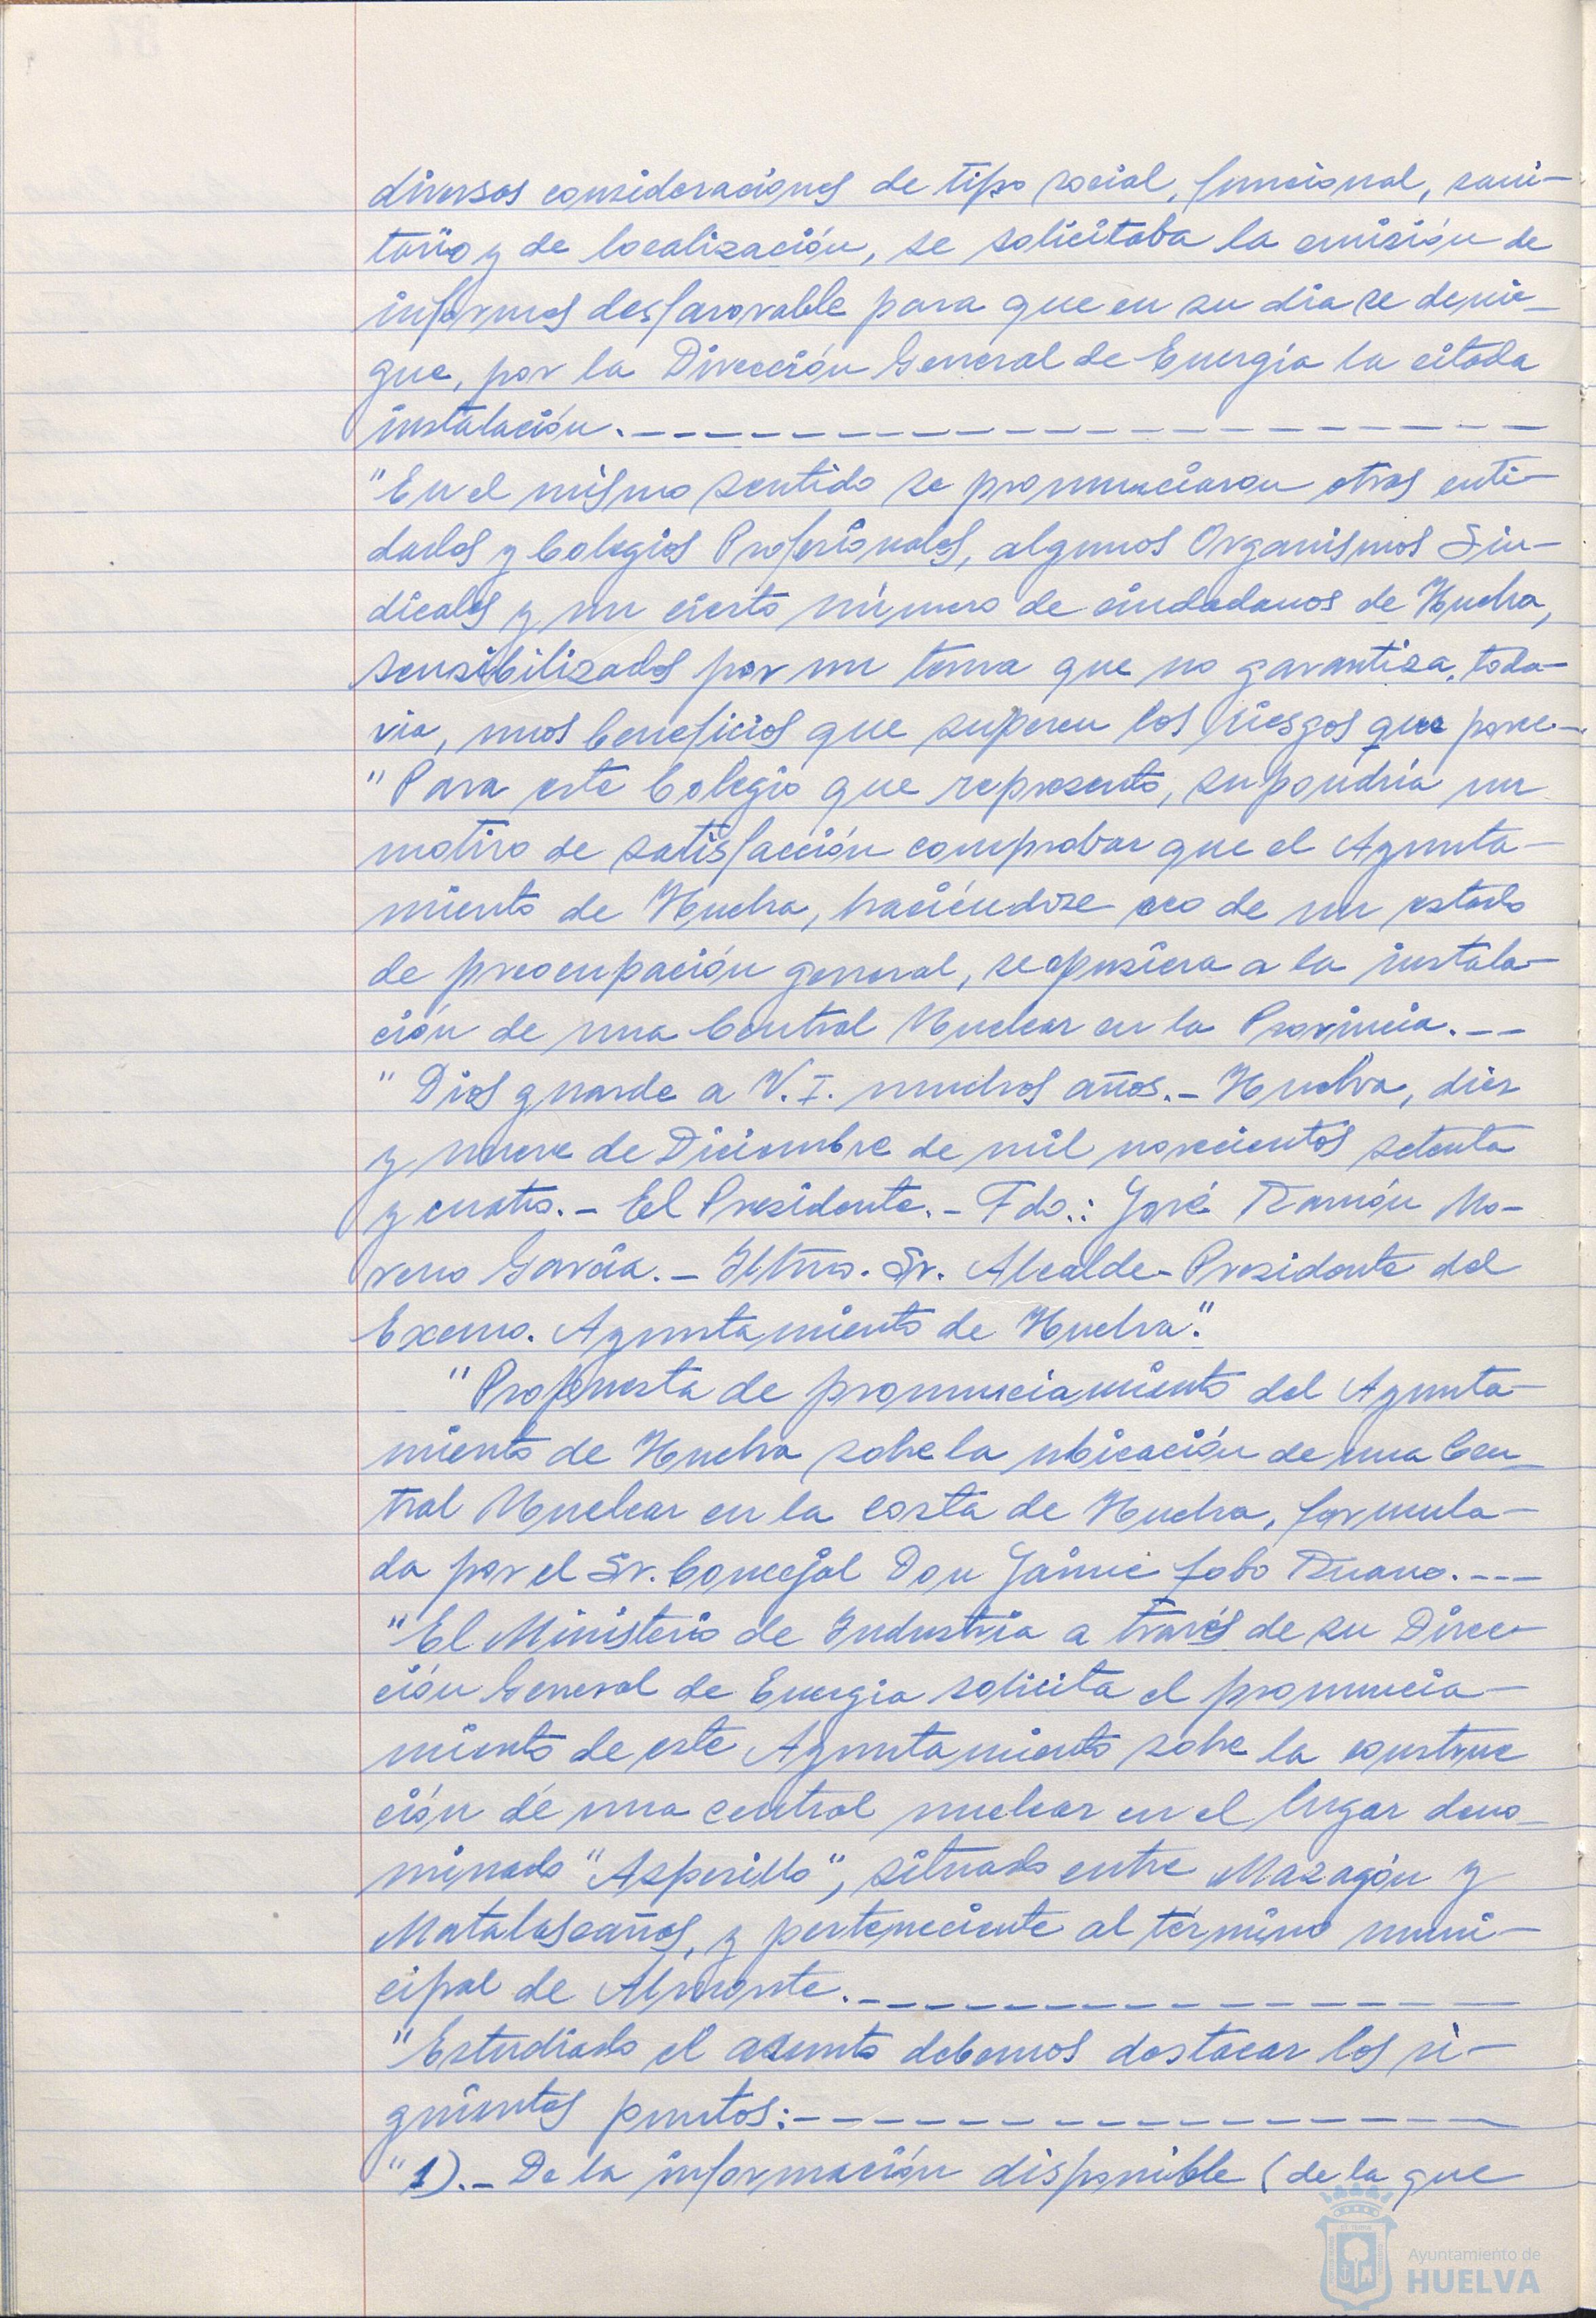 diversas consideraciones de tipo social, funcional, sani-
tario y de localización, se solicitaba la emisión de
informes desfavorable para que en su dia se denie-
gue, por la Dirección General de Energía la citada
instalación.
"En el mismo sentido se pronunciaron otras enti-
dades y Colegios Profesionales, algunos Organismos Sin-
dicales y un cierto número de ciudadanos de Huelva,
sensibilizados por un tema que no garantiza, toda-
via, unos beneficios que superen los riesgos que parece.
"Para este Colegio que represento, supondría un
motivo de satisfacción comprobar que el Ayunta-
miento de Huelva, haciéndose eco de un estado
de preocupación general, se opusiera a la instala-
ción de una Central Nuclear en la Provincia.--
"Dios guarde a V.I. muchos años.- Huelva, diez
y nueve de Diciembre de mil novecientos setenta
y cuatro.- El Presidente.- Fdo.: José Ramón Mo-
reno García.- Iltmo. Sr. Alcalde-Presidente del
Excmo. Ayuntamiento de Huelva".
"Propuesta de pronunciamiento del Ayunta-
miento de Huelva sobre la ubicación de una Cen-
tral Nuclear en la costa de Huelva, formula-
da por el Sr. Concejal Don Jaime Lobo Ruano.---
"El Ministerio de Industria a través de su Direc-
ción General de Energia solicita el pronuncia-
miento de este Ayuntamiento sobre la construc
ción de una central nuclear en el lugar deno-
minado "Asperillo", situado entre Mazagón y
Matalascañas, y perteneciente al término muni-
cipal de Almonte.
"Estudiado el asunto debemos destacar los si-
guientes puntos:
"1).- De la información disponible (de la que
Ayuntamiento de
HUELVA